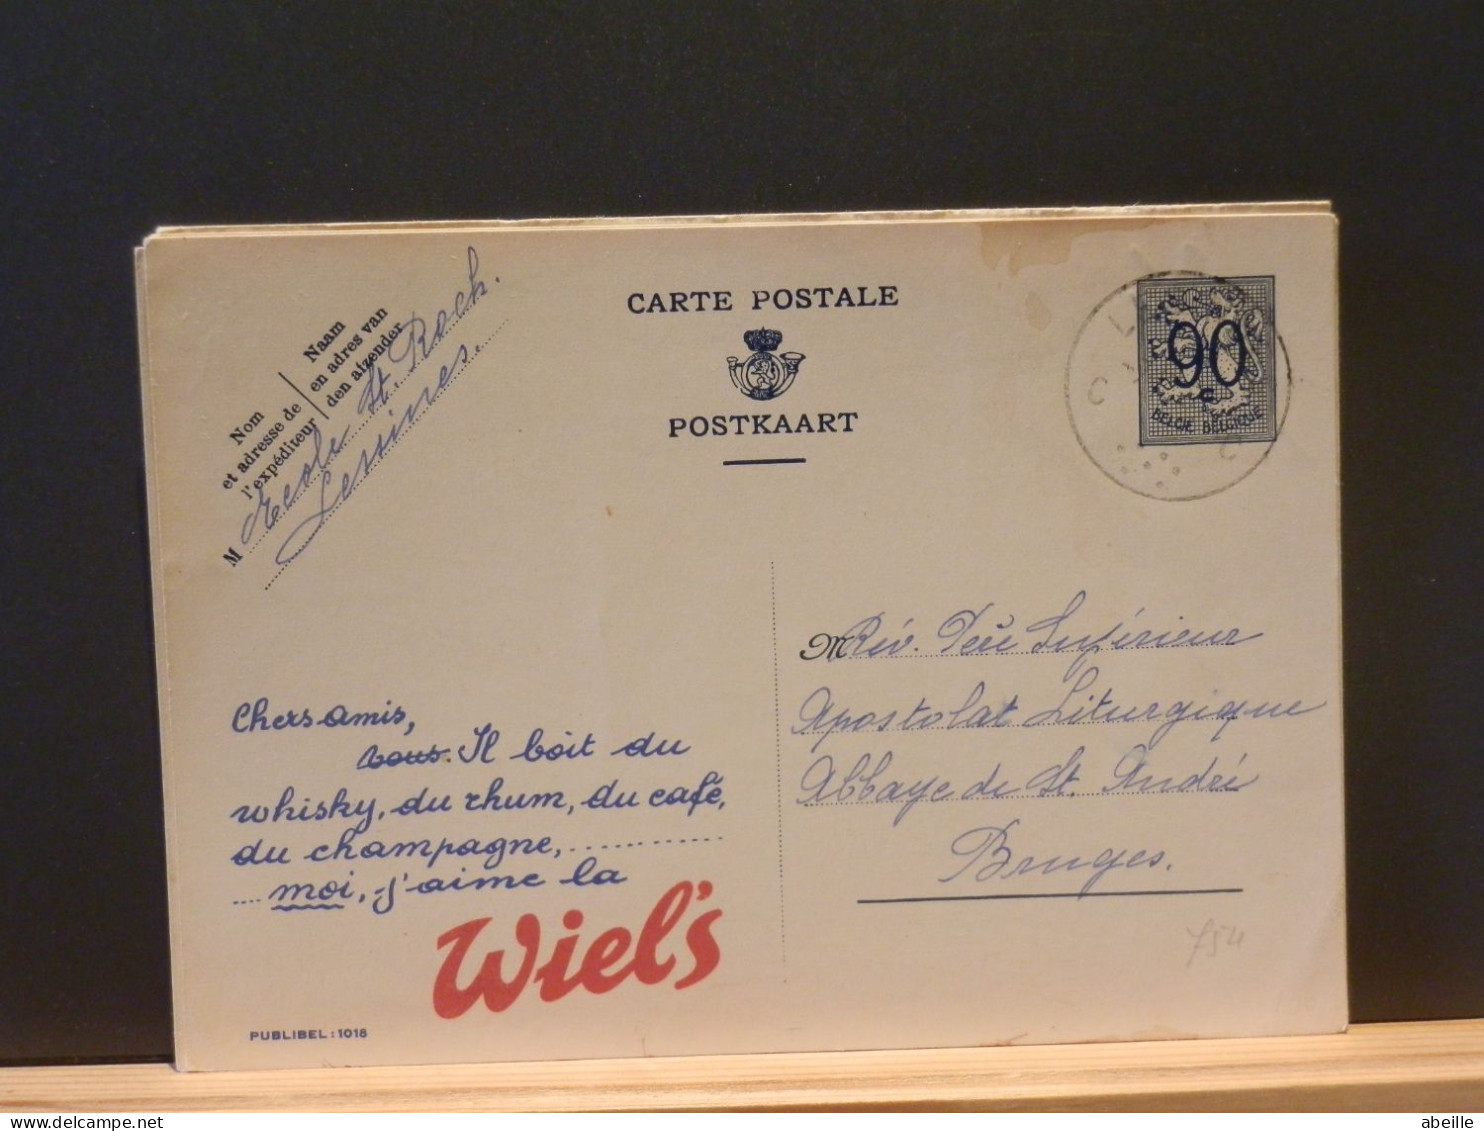 CARTE POSTALE
POSTKAART
Nom
et adresse de
l'expéditeur
Naam
en adres van
den afzender
M Ecole St. Roch.
Lessines.
90
c
BELGIE BELGIQUE
M Rév. Père Supérieur
Apostolat Liturgique
Abbaye de St. André
Bruges.
754
Chers amis,
vous. Il boit du
whisky, du rhum, du café,
du champagne, ..............
.... moi, j'aime la
Wiel's
PUBLIBEL : 1018
delcampe.net
abeille